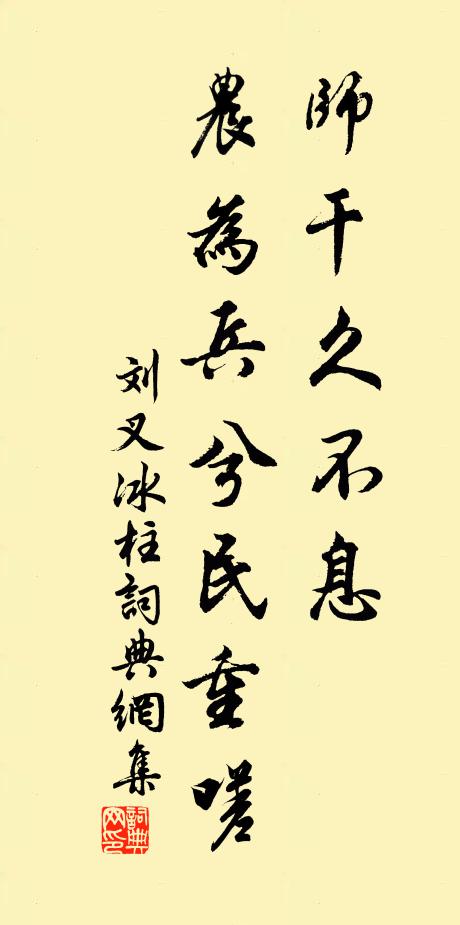 師干久不息
農為兵兮民重嗟
刘叉冰柱詞典網集
詞典网印